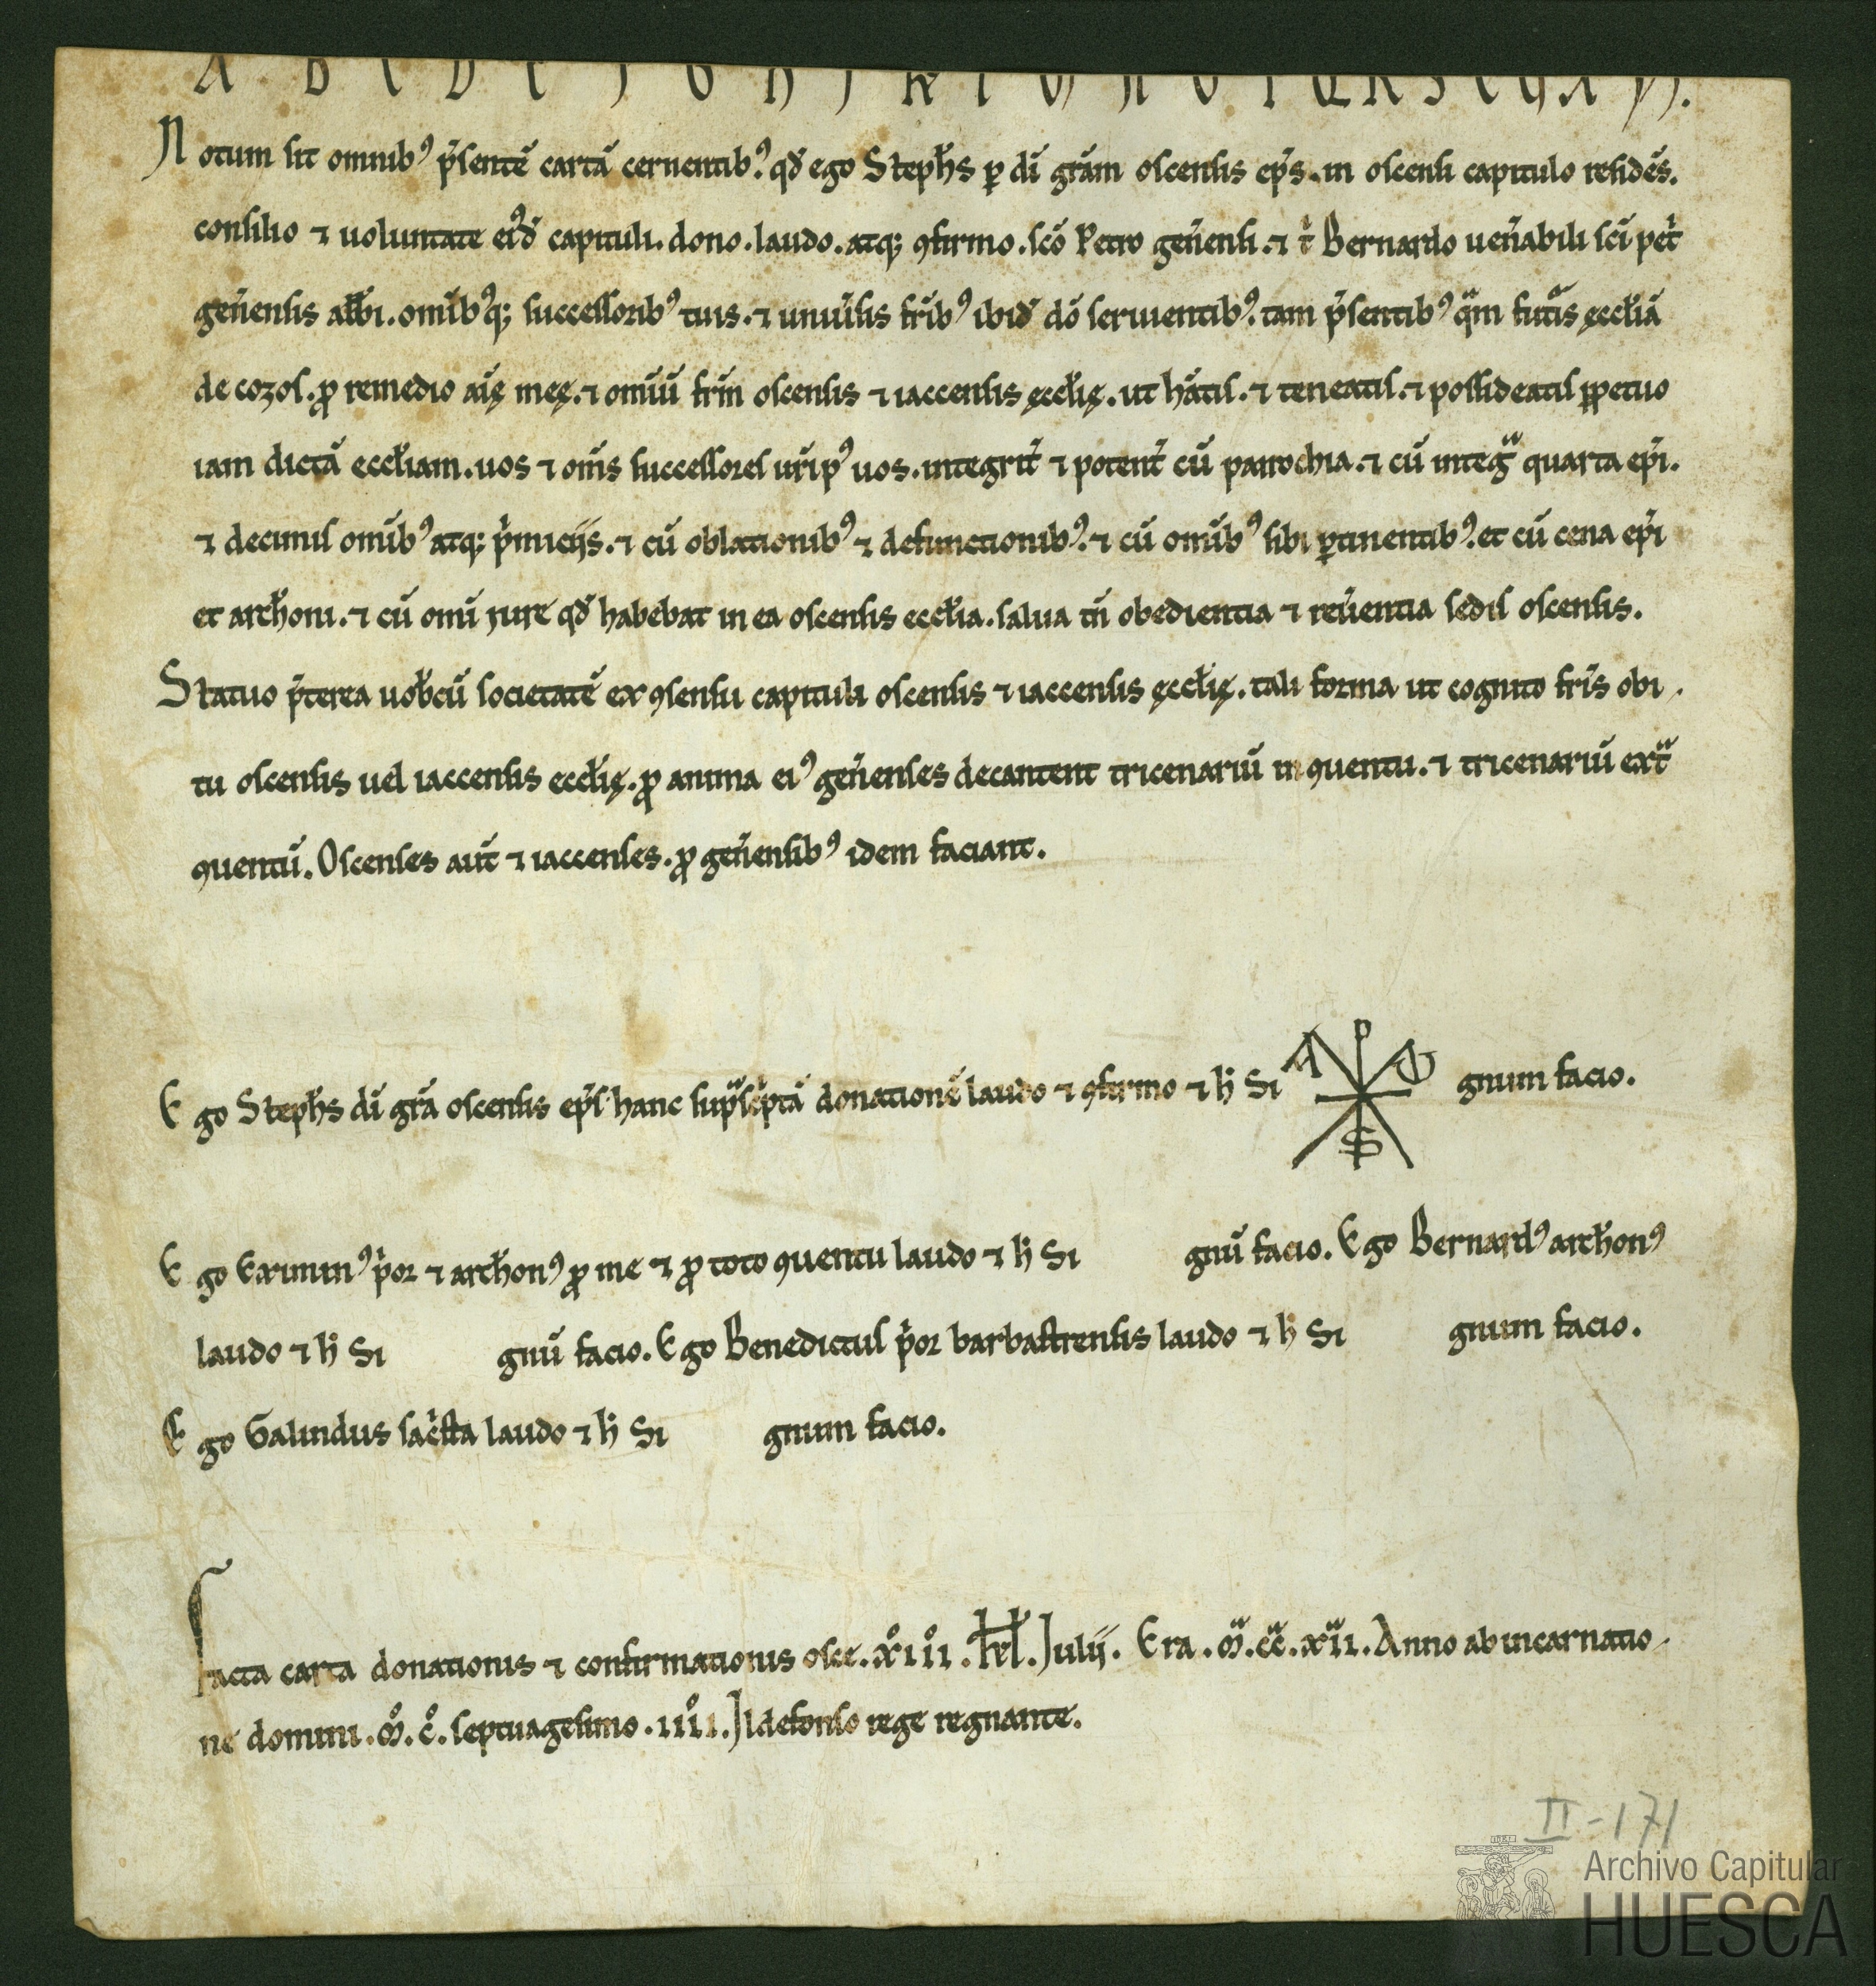 A B C D E F G H I K L M N O P Q R S T U X Y.
Notum sit omnibꝰ p̄sentē cartā cernentibꝰ. qđ ego Steph̄s ꝑ dī grām oscensis ep̄s. in oscensi capitulo residēs.
consilio ⁊ uoluntate eiꝰđ capituli. dono. laudo. atq; ꝯfirmo. scō Petro geñensi. ⁊ t̄ Bernardo ueñabili scī pet̄
geñensis abb̄i. omīb́ꝰq; successoribꝰ tuis. ⁊ uniūsis frībꝰ ibiđ dō seruientibꝰ. tam p̄sentibꝰ qᵃm futᵃis ęccl̄iā
de cozol. ꝓ remedio aīę meę. ⁊ omīū frm̄ oscensis ⁊ iaccensis ęccl̄ię. ut hātis. ⁊ teneatis. ⁊ possideatis ꝑpetuo
iam dictā eccl̄iam. uos ⁊ om̄s successores ur̄i pꝰ uos. integrit̄ ⁊ potent̄ cū parrochia. ⁊ cū integᵃ quarta ep̄i.
⁊ decimis omībꝰ atq; p̄miciis. ⁊ cū oblationibꝰ ⁊ defunctionibꝰ. ⁊ cū omībꝰ sibi ꝑtinentibꝰ. et cū cena ep̄i
et arch̄oni. ⁊ cū omī iure qđ habebat in ea oscensis eccl̄ia. salua tn̄ obedientia ⁊ reūentia sedis oscensis.
Statuo p̄terea uob̄cū societatē ex ꝯsensu capituli oscensis ⁊ iaccensis ęccl̄ię. tali forma ut cognito fr̄is obi-
tu oscensis uel iaccensis eccl̄ię. ꝓ anima eiꝰ geñenses decantent tricenariū in ꝯuentu. ⁊ tricenariū extᵃ
ꝯuentū. Oscenses aut̄ ⁊ iaccenses. ꝓ geñensibꝰ idem faciant.
Ego Steph̄s dī grā oscensis ep̄s hanc supᵃsc̄ptā donationē laudo ⁊ ꝯfirmo ⁊ h̄ Si
A P ω S
gnum facio.
Ego Eximinꝰ p̄or ⁊ arch̄onꝰ ꝓ me ⁊ ꝓ toto ꝯuentu laudo ⁊ h̄ Si gnū facio. Ego Bernardꝰ arch̄onꝰ
laudo ⁊ h̄ Si gnū facio. Ego Benedictus p̄or barbastrensis laudo ⁊ h̄ Si gnum facio.
Ego Galindus sac̄sta laudo ⁊ h̄ Si gnum facio.
Facta carta donationis ⁊ confirmationis osce. xͦiiͦi. kl̄. Julii. Era. mᵃ. ccᵃ. xiiᵃ. Anno ab incarnatio-
ne domini. mͦ. cͦ. septuagesimo. iiiiͦ. Ildefonso rege regnante.
II-171
Archivo Capitular
HUESCA